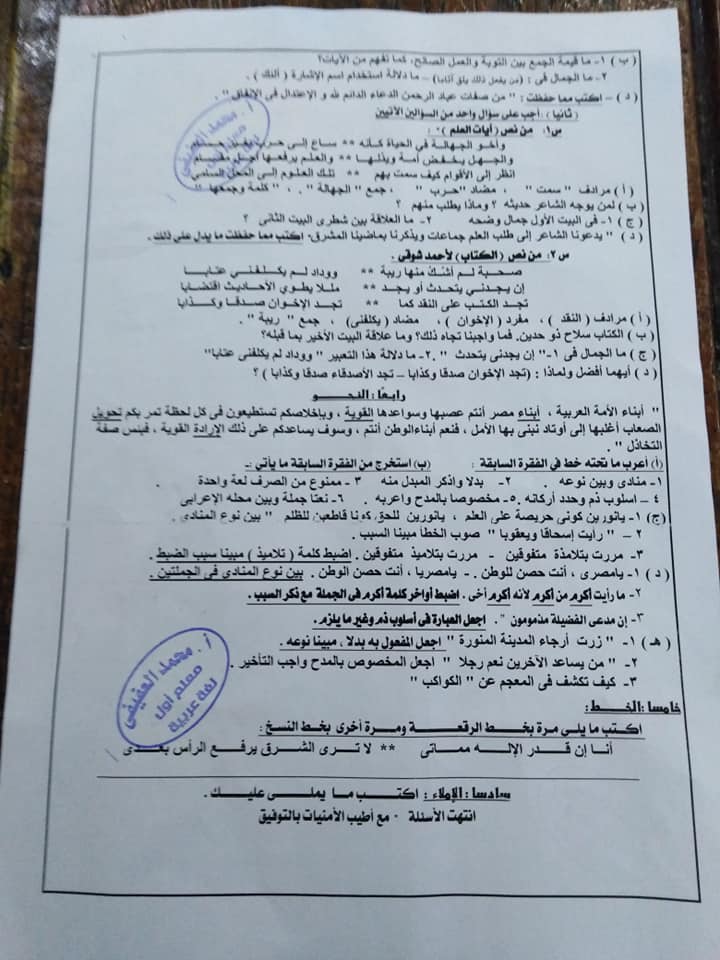 ( ب ) ١- ما قيمة الجمع بين التوبة والعمل الصالح، كما تفهم من الآيات؟
٢- ما الجمال فى : (من يفعل ذلك يلق أثاما) – ما دلالة استخدام اسم الإشارة ( ذلك ) .
( د ) – اكتب مما حفظت : " من صفات عباد الرحمن الدعاء الدائم لله و الإعتدال فى الإنفاق " .
( ثانيا ) : أجب على سؤال واحد من السؤالين الآتيين
س١: من نص ( آيات العلم ) :
وأخو الجهالة في الحياة كأنه ** ساع إلى حرب بغير
والجهل يخفض أمة ويذلها ** والعلم يرفعها أجل مقام
انظر إلى الأقوام كيف سمت بهم ** تلك العلوم إلى المحل السامي
( أ ) مرادف " سمت " ، مضاد "حرب " ، جمع " الجهالة " ، " كلمة وجمعها "
( ب ) لمن يوجه الشاعر حديثه ؟ وماذا يطلب منهم ؟
( ج ) ١- فى البيت الأول جمال وضحه ٢- ما العلاقة بين شطرى البيت الثانى ؟
( د ) " يدعونا الشاعر إلى طلب العلم جماعات ويذكرنا بماضينا المشرق- اكتب مما حفظت ما يدل على ذلك .
س٢: من نص (الكتاب) لأحمد شوقى .
صحبة لم أشك منها ريبة ** ووداد لم يكلفني عتابا
إن يجدني يتحدث أو يجد ** مللا يطوي الأحاديث اقتضابا
تجد الكتب على النقد كما ** تجد الإخوان صدقا وكذابا
( أ ) مرادف ( النقد ) ، مفرد ( الإخوان ) ، مضاد ( يكلفنى) ، جمع " ريبة " .
( ب ) الكتاب سلاح ذو حدين. فما واجبنا تجاه ذلك؟ وما علاقة البيت الأخير بما قبله؟
( ج ) ما الجمال فى ١-" إن يجدنى يتحدث " .٢- ما دلالة هذا التعبير " ووداد لم يكلفنى عتابا"
( د ) أيهما أفضل ولماذا : (تجد الإخوان صدقا وكذابا – تجد الأصدقاء صدقا وكذابا ) ؟
رابعًا: النحــو
" أبناء الأمة العربية ، أبناء مصر أنتم عصبها وسواعدها القوية ، وبإخلاصكم تستطيعون فى كل لحظة تمر بكم تحويل
الصعاب أغلبها إلى أوتاد نبنى بها الأمل ، فنعم أبناء الوطن أنتم ، وسوف يساعدكم على ذلك الإرادة القوية ، فبئس صفة
التخاذل " .
(أ) أعرب ما تحته خط في الفقرة السابقة : (ب) استخرج من الفقرة السابقة ما يأتي :-
١- منادى وبين نوعه . ٢- بدلا واذكر المبدل منه ٣ – ممنوع من الصرف لعة واحدة .
٤ – اسلوب ذم وحدد أركانه .٥- مخصوصا بالمدح واعربه . ٦- نعتا جملة وبين محله الإعرابى
(ج) ١- يانورين كونى حريصة على العلم ، يانورين للحق كونا قاطعين للظلم " بين نوع المنادى .
٢ – " رأيت إسحاقا ويعقوبا " صوب الخطأ مبينا السبب .
٣- مررت بتلامذة متفوقين - مررت بتلاميذ متفوقين . اضبط كلمة ( تلاميذ ) مبينا سبب الضبط .
( د ) ١- يامصرى ، أنت حصن للوطن .- يامصريا ، أنت حصن الوطن . بين نوع المنادى فى الجملتين .
٢- ما رأيت أكرم من أكرم لأنه أكرم أخى . اضبط أواخر كلمة أكرم فى الجملة مع ذكر السبب .
٣- إن مدعى الفضيلة مذمومون " . اجعل العبارة فى أسلوب ذم وغير ما يلزم .
( هـ ) ١- " زرت أرجاء المدينة المنورة " اجعل المفعول به بدلا ، مبينا نوعه .
٢- " من يساعد الآخرين نعم رجلا " اجعل المخصوص بالمدح واجب التأخير .
٣- كيف تكشف فى المعجم عن " الكواكب "
خامسا :الخط:
اكتب ما يلى مرة بخط الرقعة ومرة أخرى بخط النسخ :
أنا إن قدر الإله مماتى ** لا ترى الشرق يرفع الرأس بعدى
سادسا : الإملاء : اكتب ما يملى عليك .
انتهت الأسئلة ٠ مع أطيب الأمنيات بالتوفيق
أ. محمد العفيفى
معلم أول
لغة عربية
أ. محمد العفيفى
معلم أول